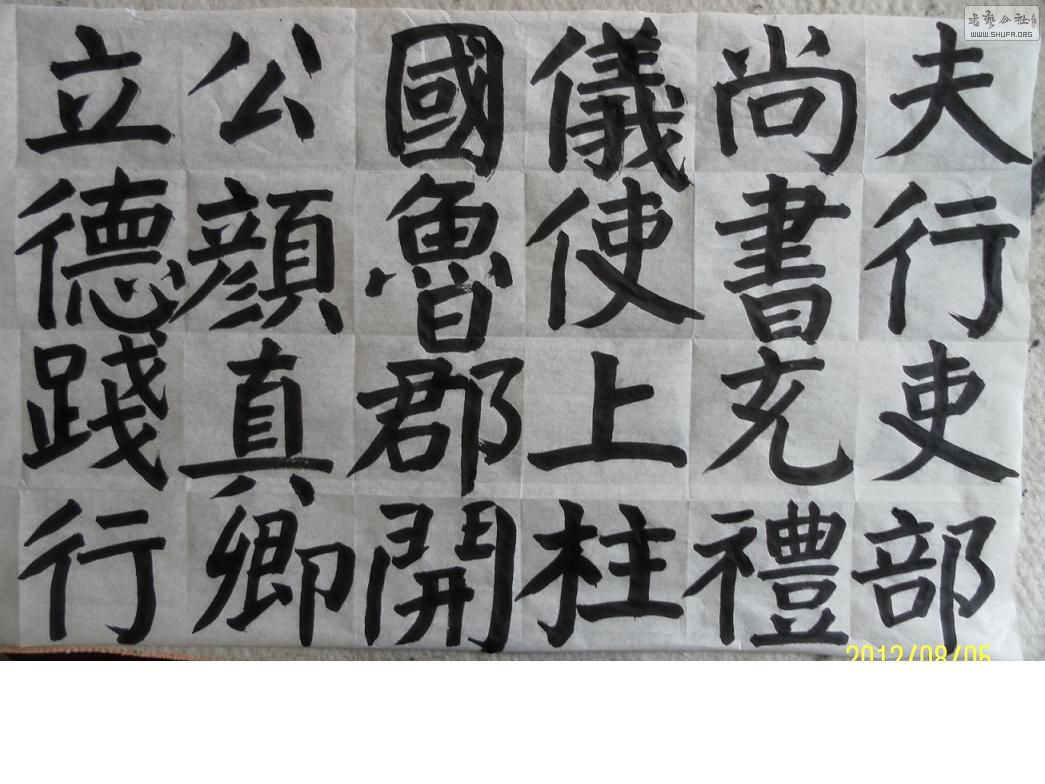 夫行吏部
尚書充禮
儀使上柱
國魯郡開
公顏真卿
立德踐行
書藝公社
WWW.SHUFA.ORG
2012/08/05